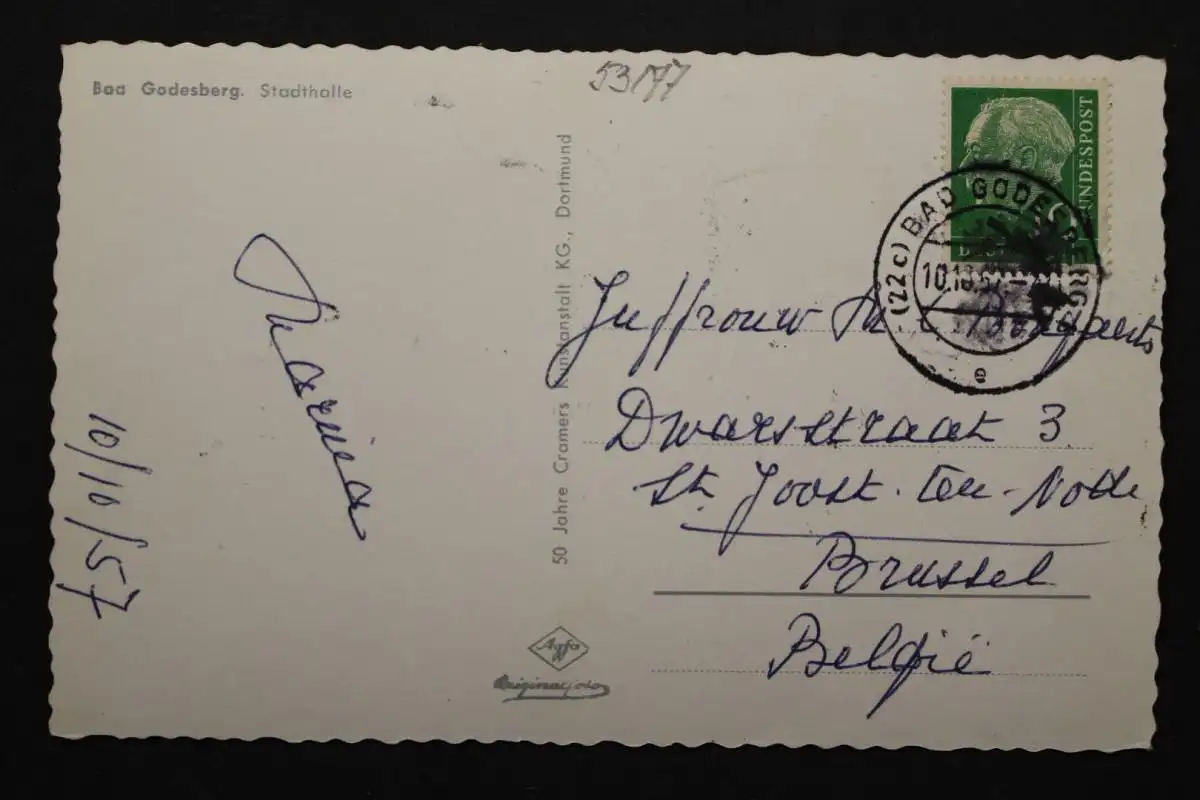 53177
Bad Godesberg. Stadthalle
BUNDESPOST
(22c) BAD GODESBERG
10.10.57
e
Juffrouw
Dwarsstraat 3
St. Joost-ten-Node
Brussel
België
Maria
10/10/57
50 Jahre Cramers Kunstanstalt KG., Dortmund
Agfa
Originalfoto